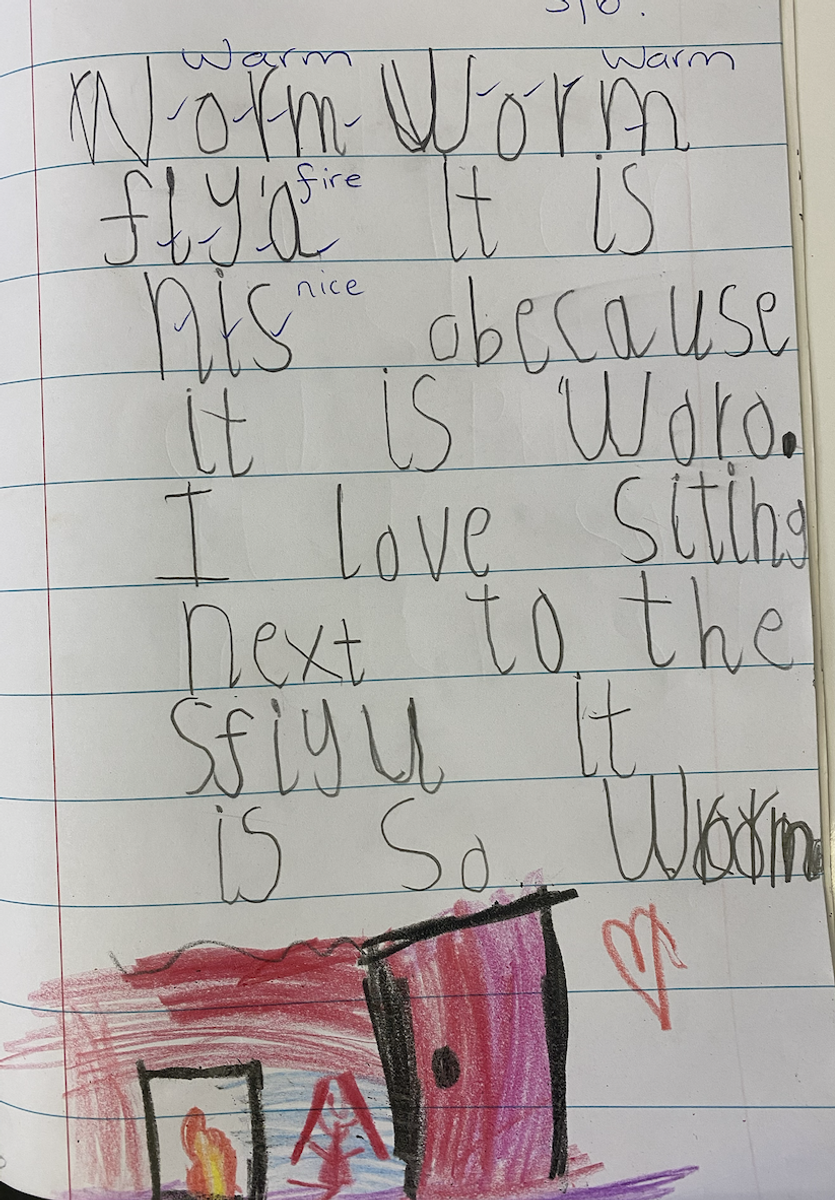 Warm Warm
Worm Worm
fire
fiy'a It is
nice
nis abecause
it is Woro.
I love Siting
next to the
Sfiyu it
is So